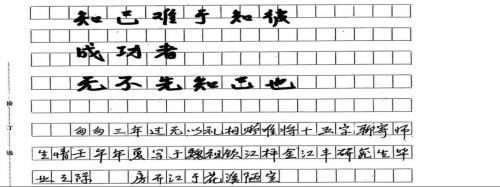 知己难于知彼
成功者
无不先知己也
匆匆三年过无以礼相赠唯将十五字聊寄师
生情壬午年夏写于魏祖钦江梓金江丰研究生毕
业之际 房开江于花溪陋室